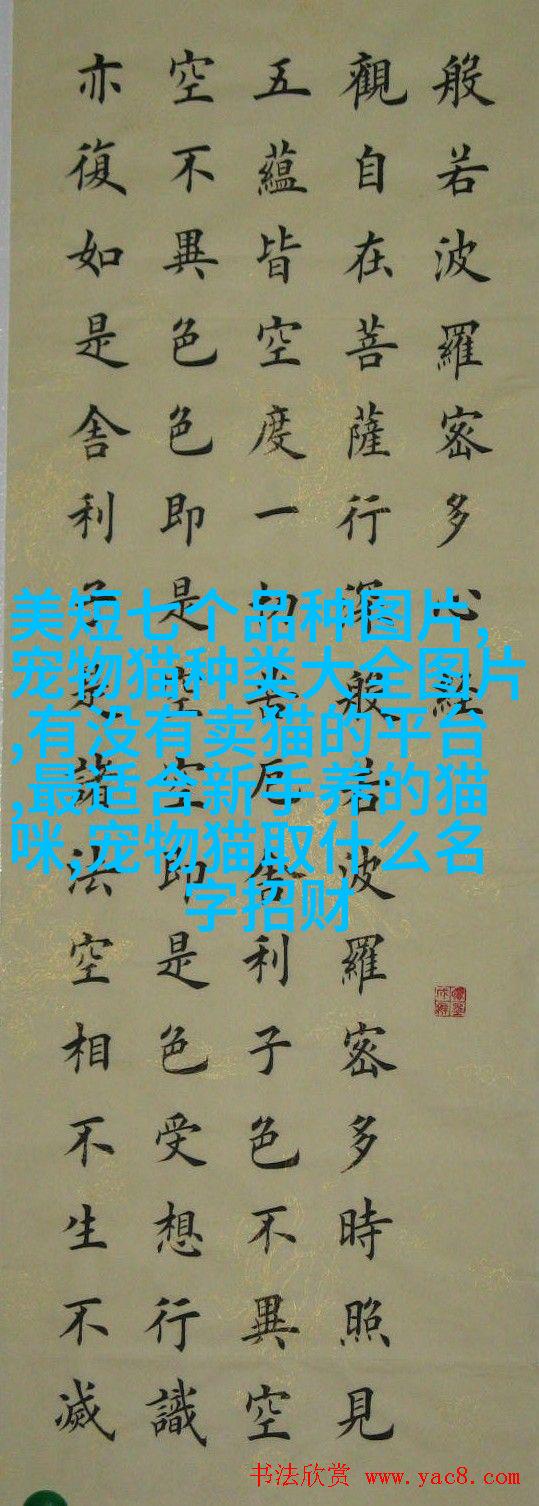 般若波羅密多心經
觀自在菩薩行深般若波羅密多時照見
五蘊皆空度一切苦厄舍利子色不異空
空不異色色即是空空即是色受想行識
亦復如是舍利子是諸法空相不生不滅
美短七个品种图片,
宠物猫种类大全图片
,有没有卖猫的平台
,最适合新手养的猫
咪,宠物猫取什么名
字招财
书法欣赏 www.yac8.com